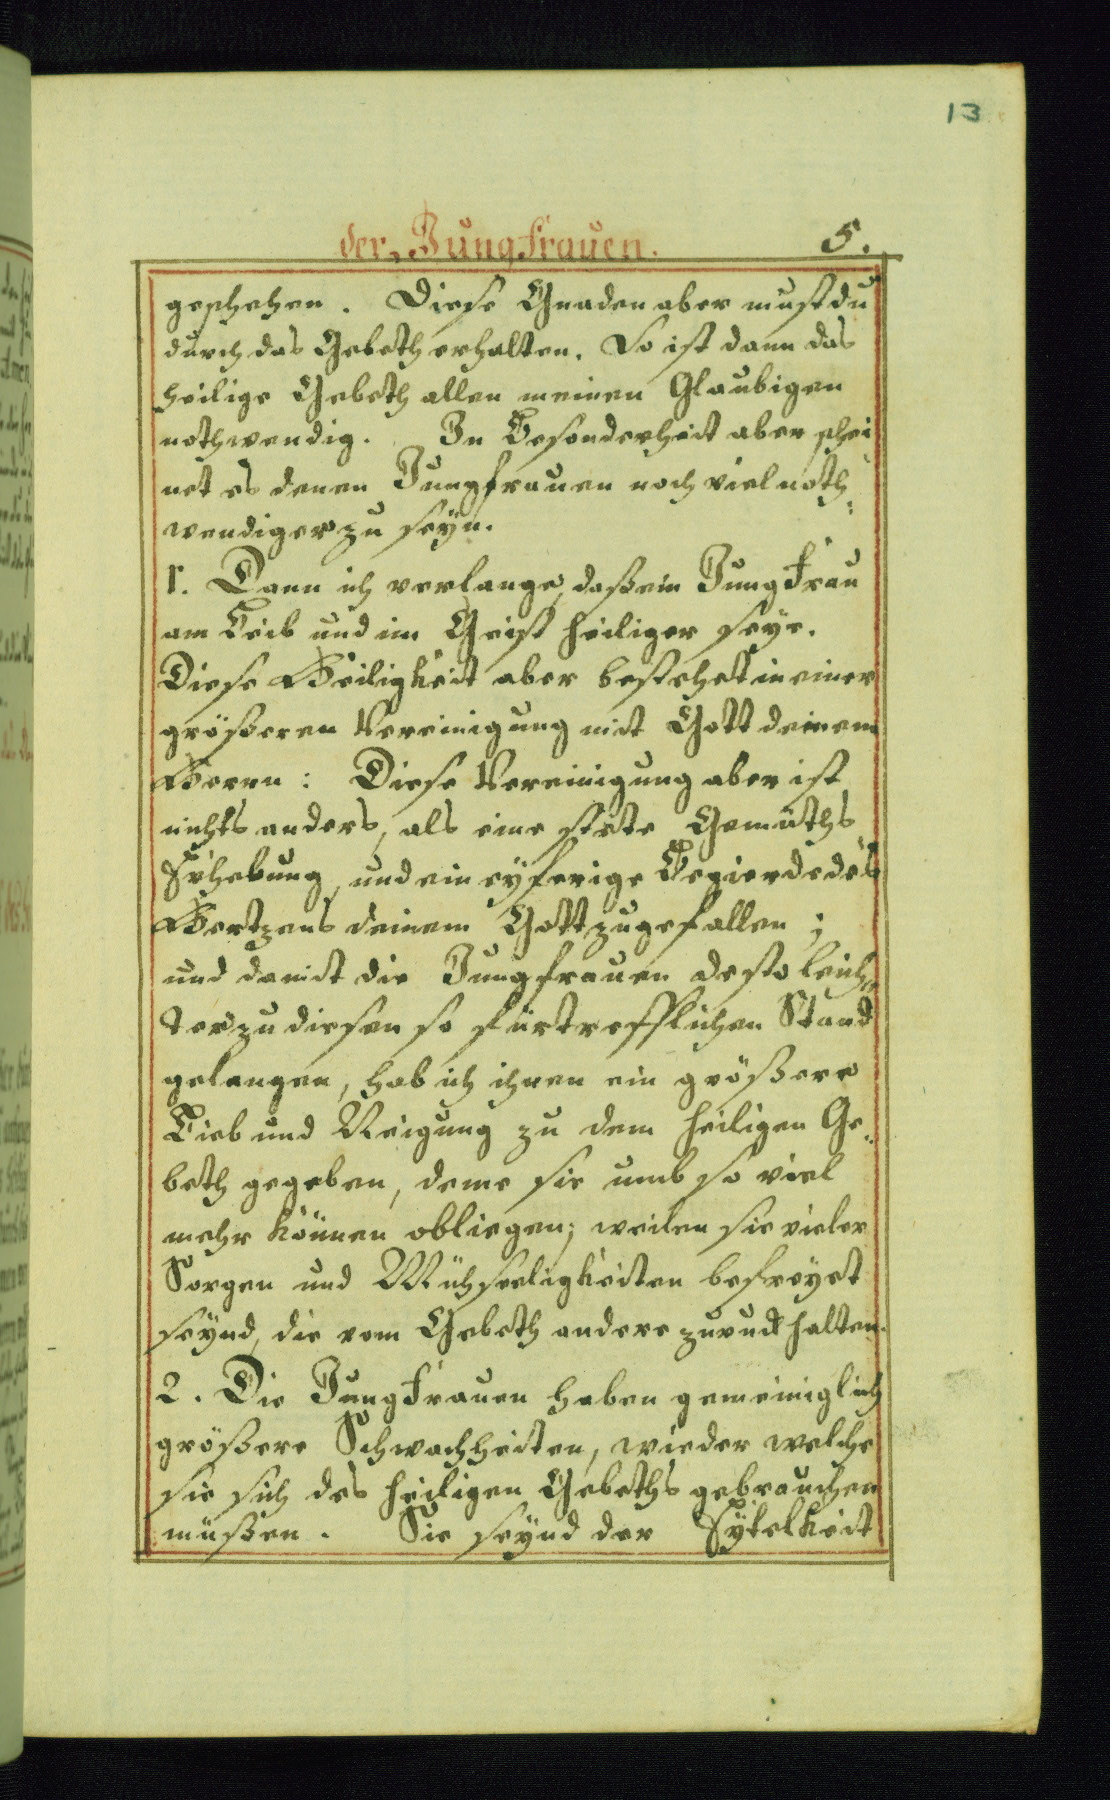 13
der Jungfrauen. 5.
geschehen. Diese Gnaden aber must du
durch das Gebeth erhalten. So ist dann das
heilige Gebeth allen meinen Glaubigen
nothwendig. In Besonderheit aber schei
net es denen Jungfrauen noch viel noth-
wendiger zu seÿn.
1. Dann ich verlange, daß ein Jungfrau
am Leib und im Geist heiliger seÿe.
Diese Heiligkeit aber bestehet in einer
größeren Vereinigung mit Gott deinem
Herrn: Diese Vereinigung aber ist
nichts anders, als eine stete Gemüths
Erhebung, und ein eÿferige Begierde des
Hertzens deinem Gott zugefallen;
und damit die Jungfrauen desto leich-
ter zu diesen so fürtrefflichen Stand
gelangen, hab ich ihnen ein größere
Lieb und Neigung zu dem heiligen Ge-
beth gegeben, deme sie umb so viel
mehr können obliegen; weilen sie vieler
Sorgen und Mühseeligkeiten befreÿet
seÿnd, die vom Gebeth andere zuruckhalten.
2. Die Jungfrauen haben gemeiniglich
größere Schwachheiten, wieder welche
sie sich des heiligen Gebeths gebrauchen
müßen. Sie seÿnd der Eÿtelkeit